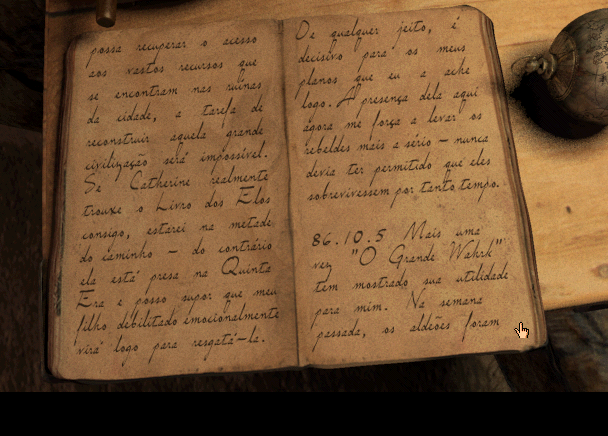 possa recuperar o acesso
aos vastos recursos que
se encontram nas ruínas
da cidade, a tarefa de
reconstruir aquela grande
civilização será impossível.
Se Catherine realmente
trouxe o Livro dos Elos
consigo, estarei na metade
do caminho - do contrário
ela está presa na Quinta
Era e posso supor que meu
filho debilitado emocionalmente
virá logo para resgatá-la.
De qualquer jeito, é
decisivo para os meus
planos que eu a ache
logo. A presença dela aqui
agora me força a levar os
rebeldes mais a sério - nunca
devia ter permitido que eles
sobrevivessem por tanto tempo.
86.10.5 Mais uma
vez "O Grande Wahrk"
tem mostrado sua utilidade
para mim. Na semana
passada, os aldeões foram